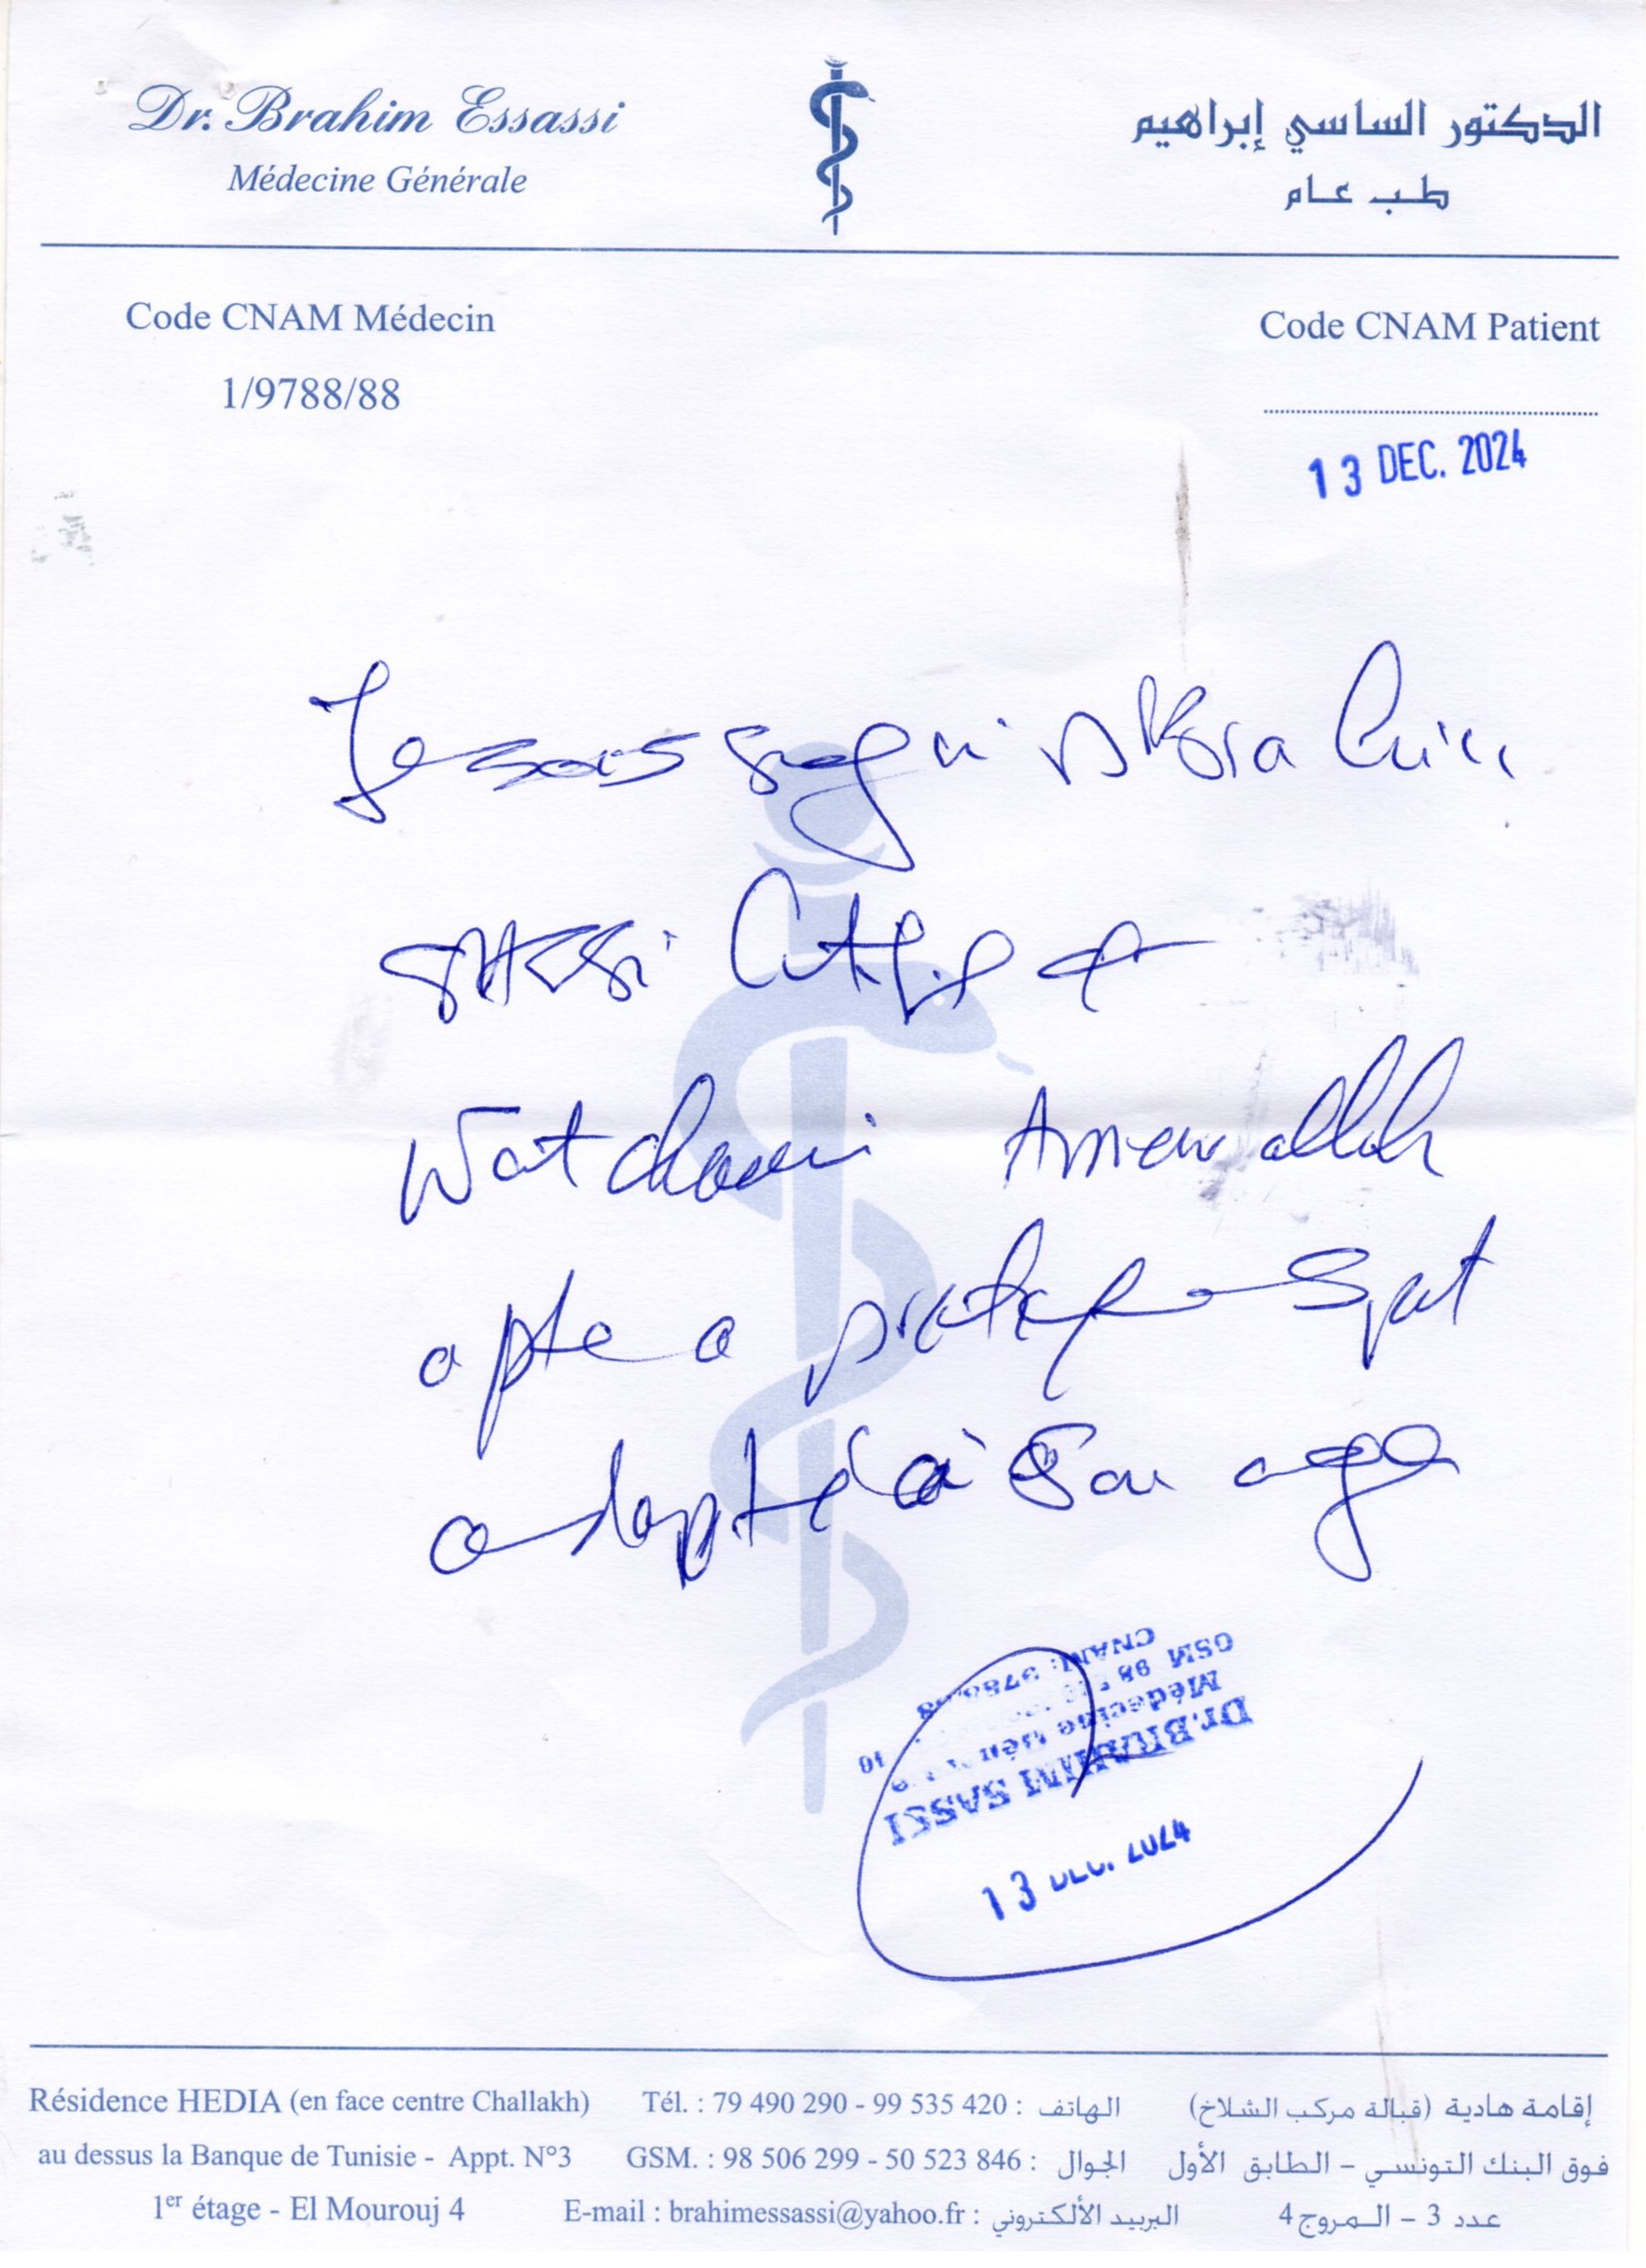 Dr. Brahim Essassi
Médecine Générale
الدكتور الساسي إبراهيم
طب عام
Code CNAM Médecin
1/9788/88
Code CNAM Patient
13 DEC. 2024
Je soussigné Dr Brahim
SASSI Certifie
Amenallah
apte a pratiquer Sport
adapté à Son age
Dr.BRAHIM SASSI
Médecine
GSM 98
CNAM: 9788/88
13 DEC. 2024
Résidence HEDIA (en face centre Challakh)
au dessus la Banque de Tunisie - Appt. N°3
1er étage - El Mourouj 4
Tél. : 79 490 290 - 99 535 420 : الهاتف
GSM. : 98 506 299 - 50 523 846 : الجوال
E-mail : brahimessassi@yahoo.fr : البريد الألكتروني
إقامة هادية (قبالة مركب الشلاخ)
فوق البنك التونسي – الطابق الأول
عدد 3 – المروج 4